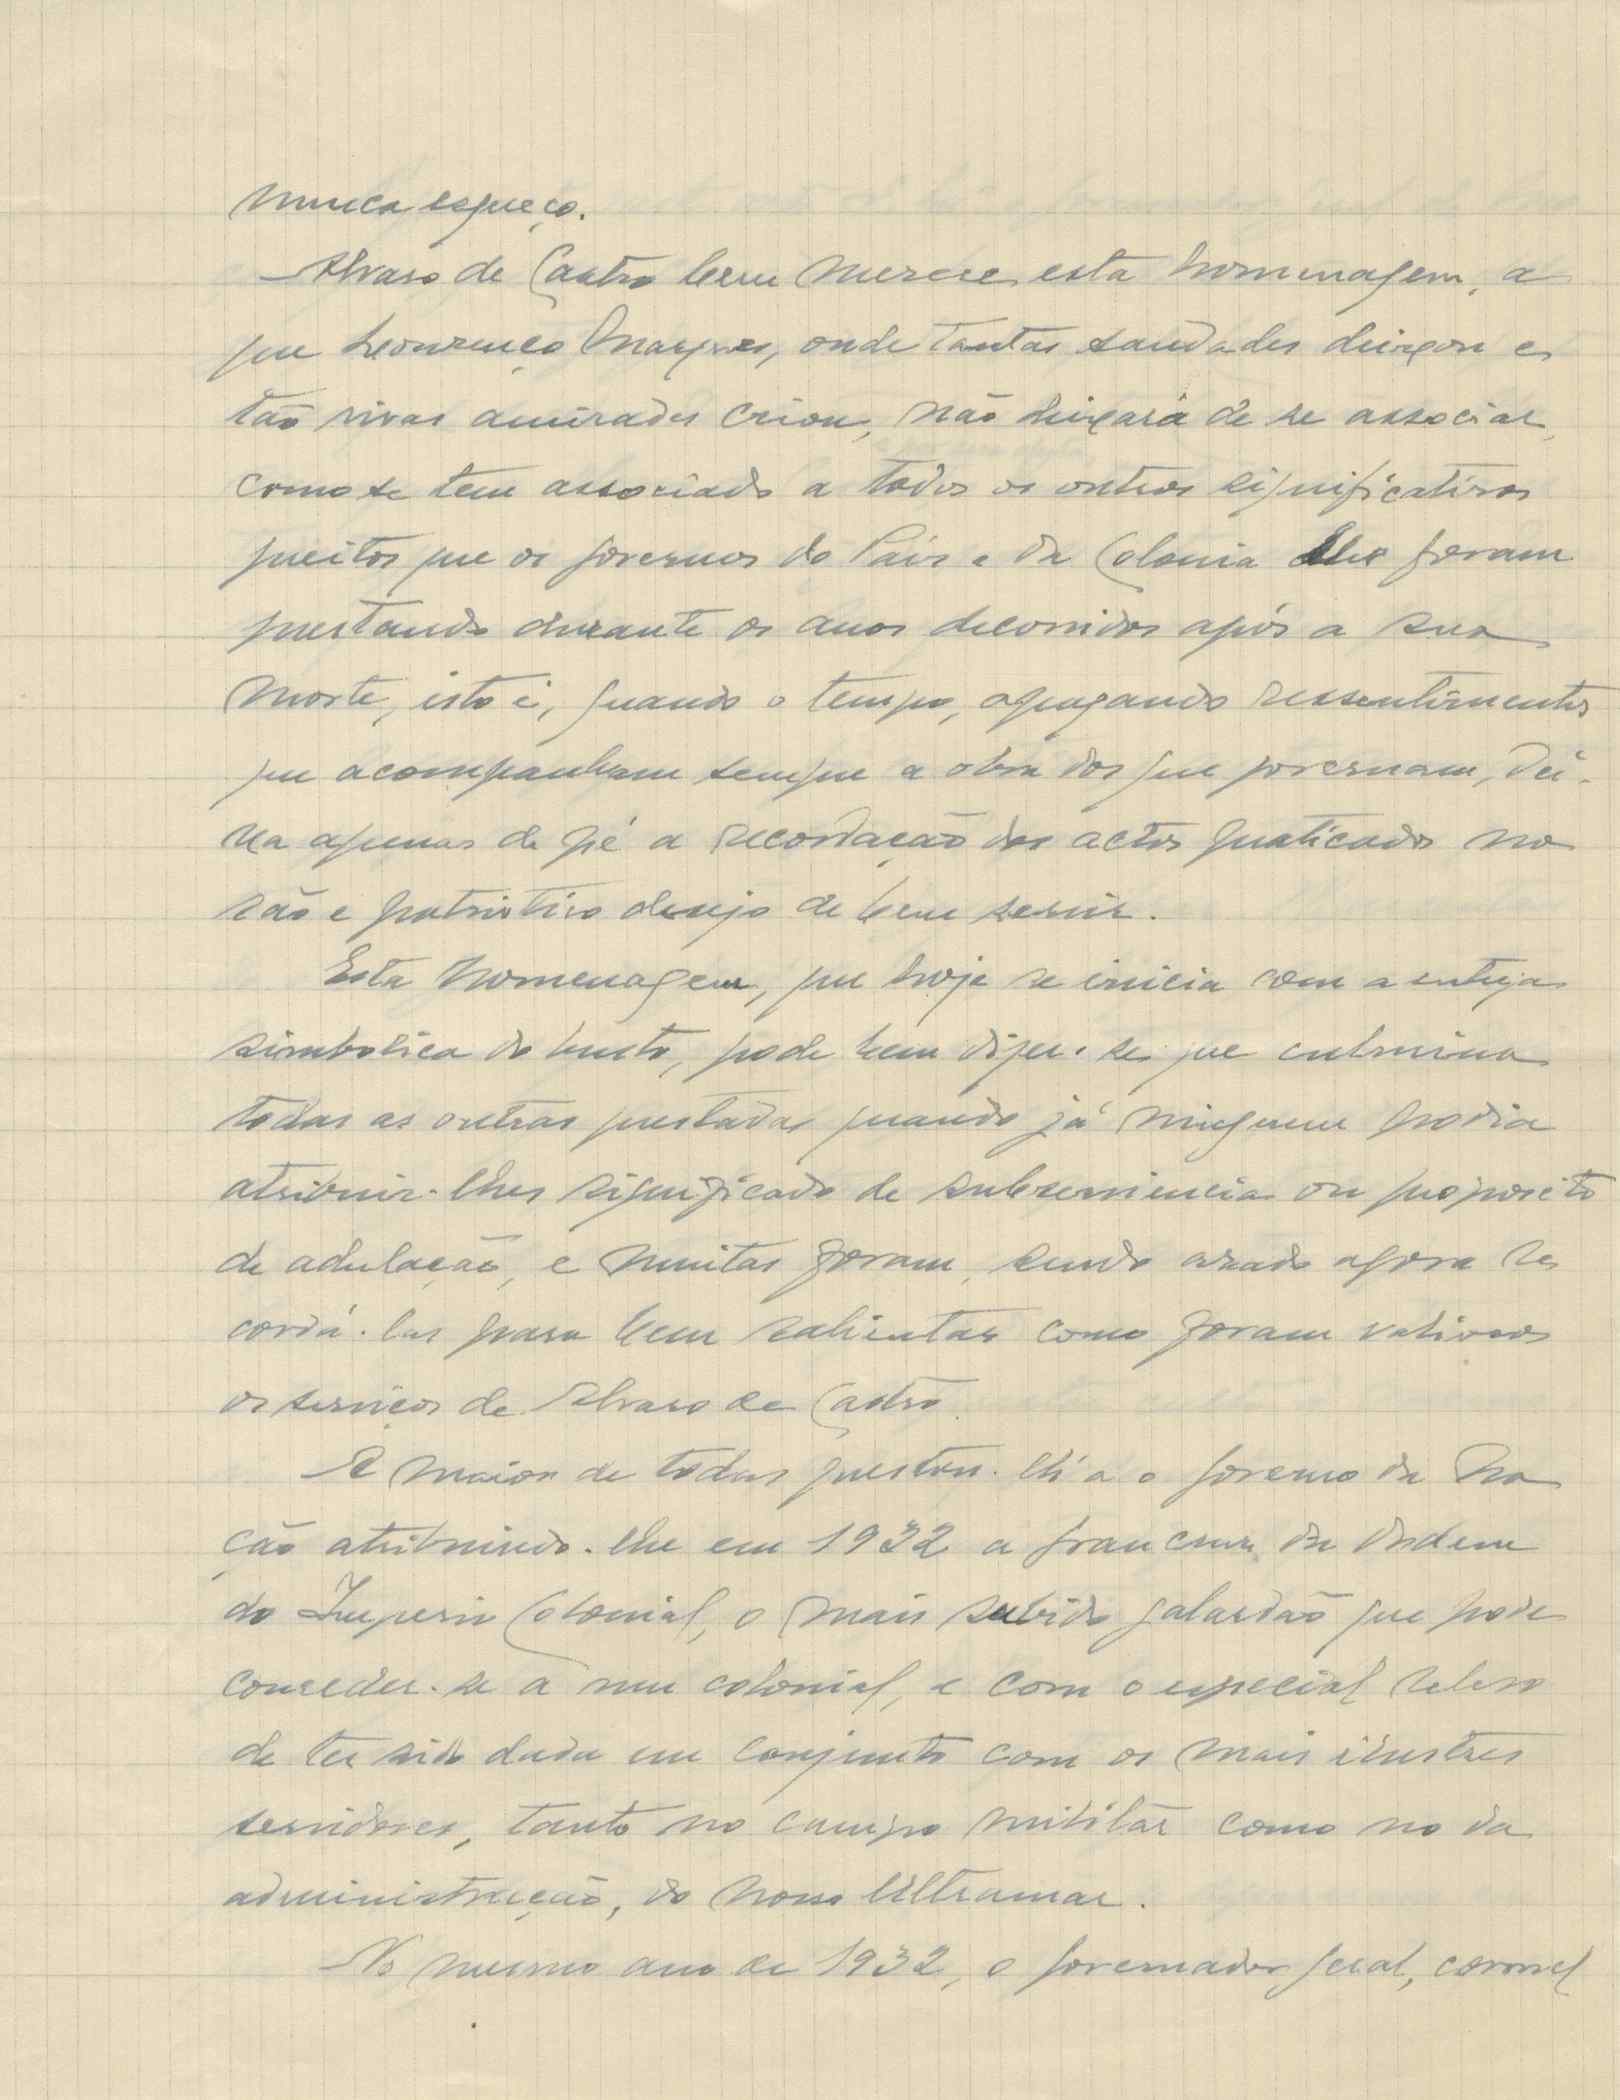 nunca esqueço.
Alvaro de Castro bem merece esta homenagem, a
que Lourenço Marques, onde tantas saudades deixou e
tão vivas amizades criou, não deixará de se associar,
como se tem associado a todos os outros significativos
preitos que os governos do País e da Colonia lhe foram
prestando durante os anos decorridos após a sua
morte, isto é, quando o tempo, apagando ressentimentos
que acompanham sempre a obra dos que governam, dei-
xa apenas de pé a recordação dos actos praticados no
são e patriotico desejo de bem servir.
Esta homenagem, que hoje se inicia com a entrega
simbolica do busto, pode bem dizer-se que culmina
todas as outras prestadas quando já ninguem podia
atribuir-lhes significado de subserviencia ou proposito
de adulação, e muitas foram, sendo azado agora re
cordá-las para bem salientar como foram valiosos
os serviços de Alvaro de Castro.
A maior de todas prestou-lh'a o governo da Na
ção atribuindo-lhe em 1932 a gran cruz da Ordem
do Imperio Colonial, o mais subido galardão que pode
conceder-se a um colonial, e com o especial relevo
de ter sido dada em conjunto com os mais ilustres
servidores, tanto no campo militar como no da
administração, do nosso Ultramar.
No mesmo ano de 1932, o governador geral, coronel